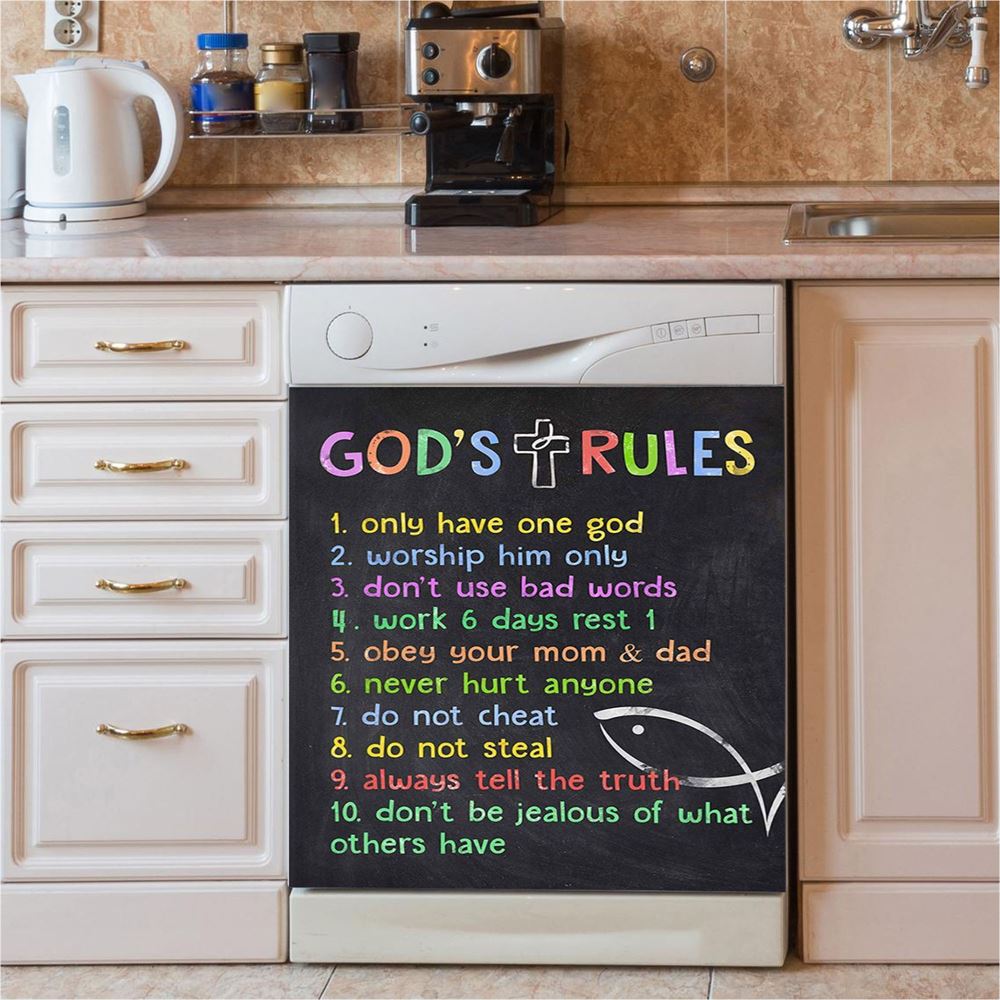 GOD'S RULES
1. only have one god
2. worship him only
3. don't use bad words
4. work 6 days rest 1
5. obey your mom & dad
6. never hurt anyone
7. do not cheat
8. do not steal
9. always tell the truth
10. don't be jealous of what
others have